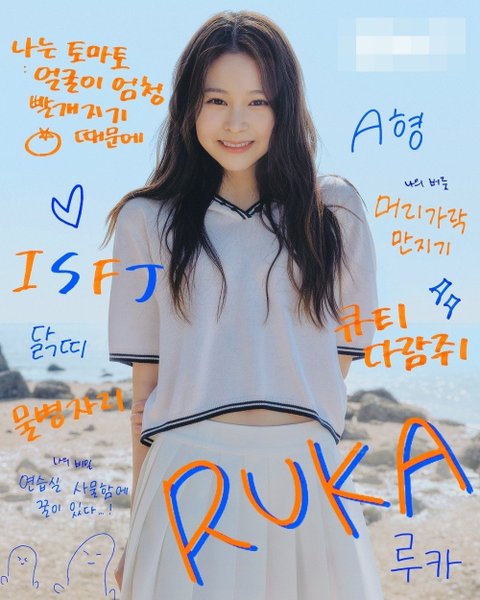 나는 토마토
얼굴이 엄청
빨개지기
때문에
A형
나의 버릇
머리카락
만지기
ISFJ
큐티
다람쥐
닭띠
물병자리
나의 비밀
연습실 사물함에
꿀이 있다...!
RUKA
루카